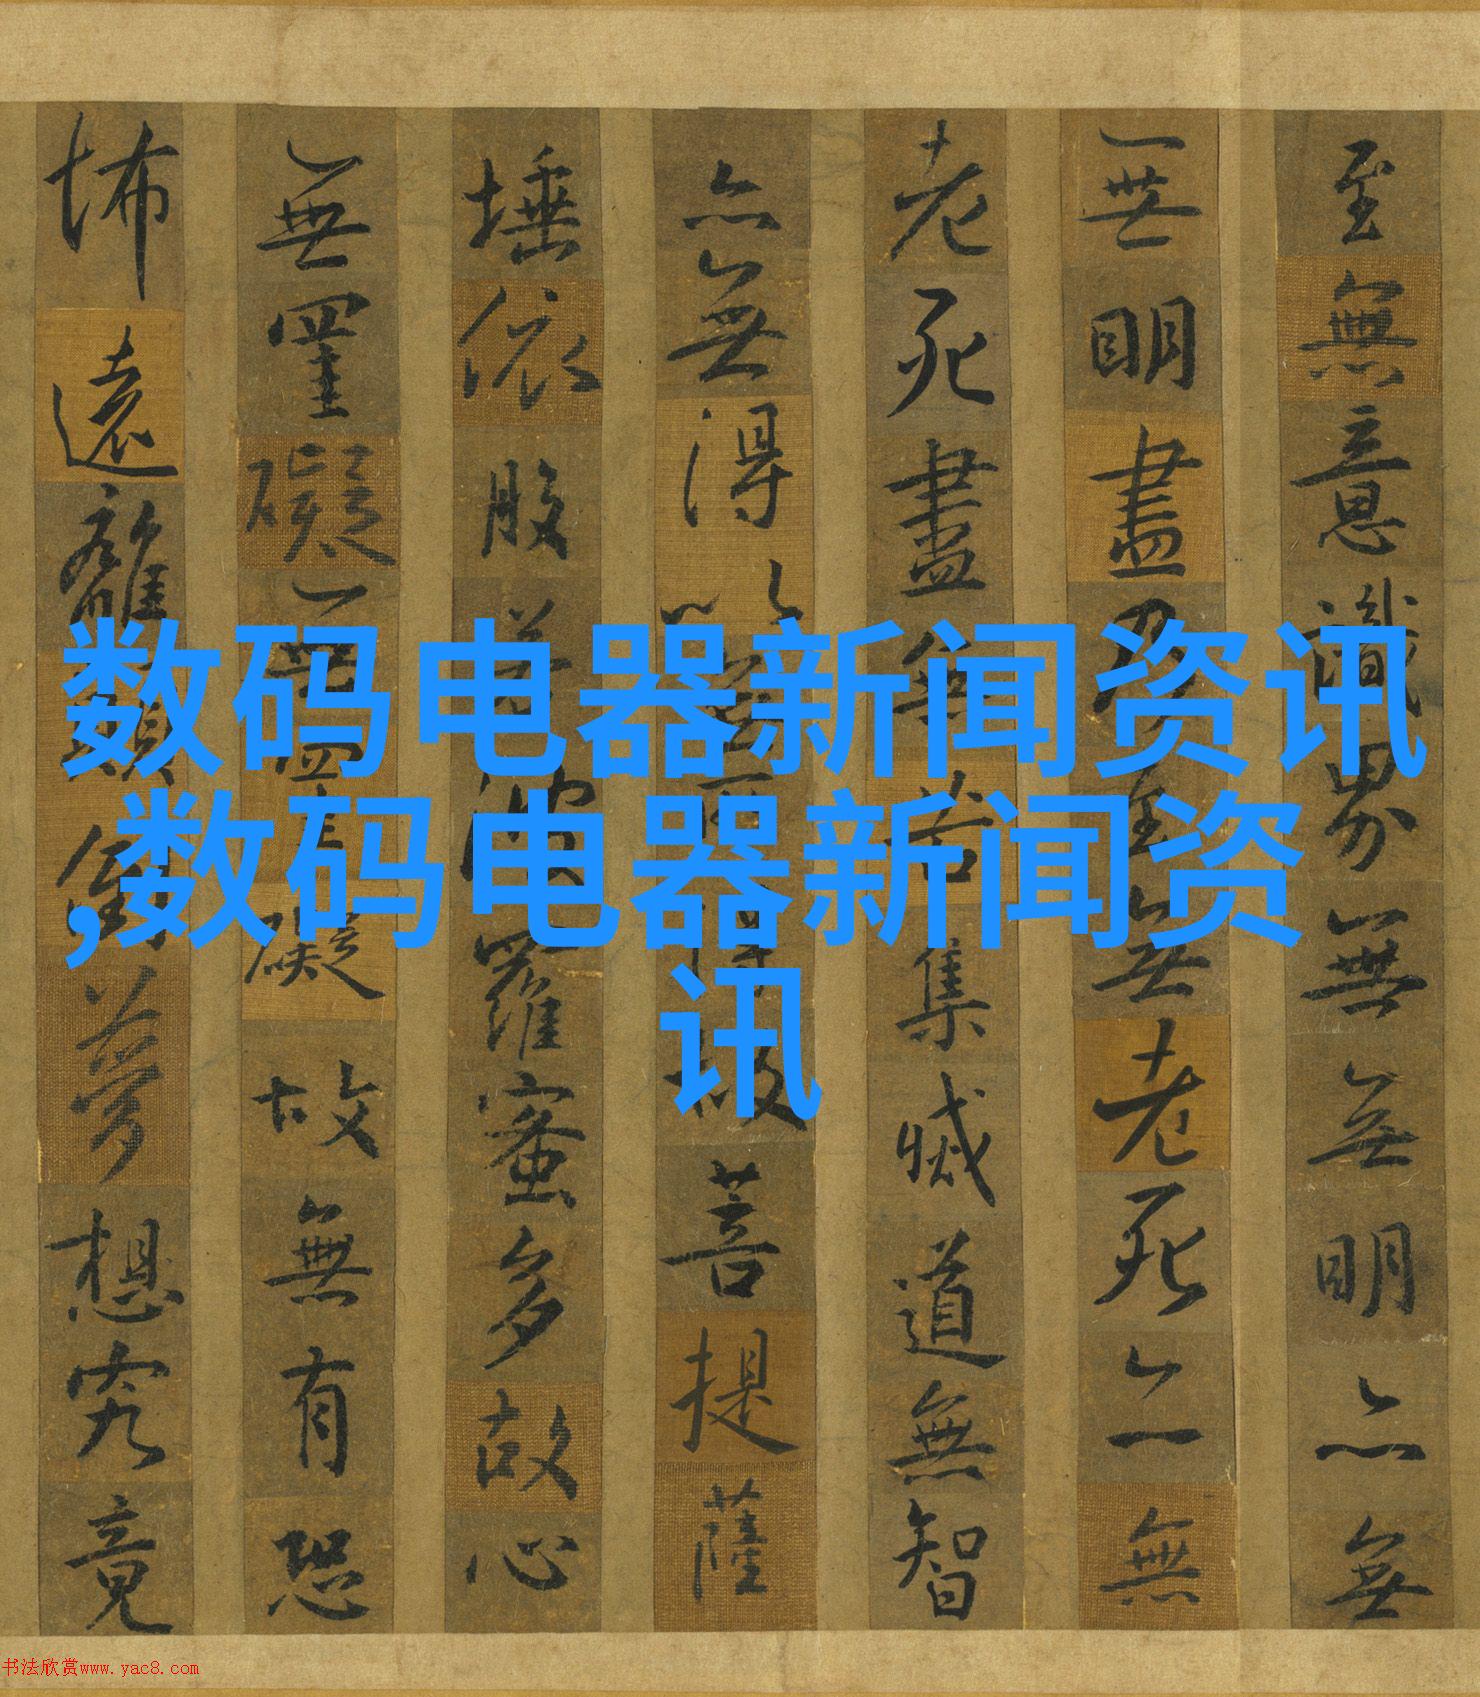 至無意識界無無明亦無
無明盡乃至無老死亦無
老死盡無苦集滅道無智
亦無得以無所得故菩提薩
埵依般若波羅蜜多故心
無罣礙無罣礙故無有恐
怖遠離顛倒夢想究竟
数码电器新闻资讯
,数码电器新闻资
讯
书法欣赏www.yac8.com